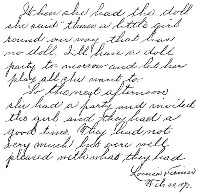 When she had the doll
she said "there's a little girl
round our way that has
no doll I'll have a doll
party to morrow and let her
play all she want to.
So the next afternoon
she had a party and invited
the girl and they had a
good time. They had not
very much but were well
pleased with what they had.
Louisa